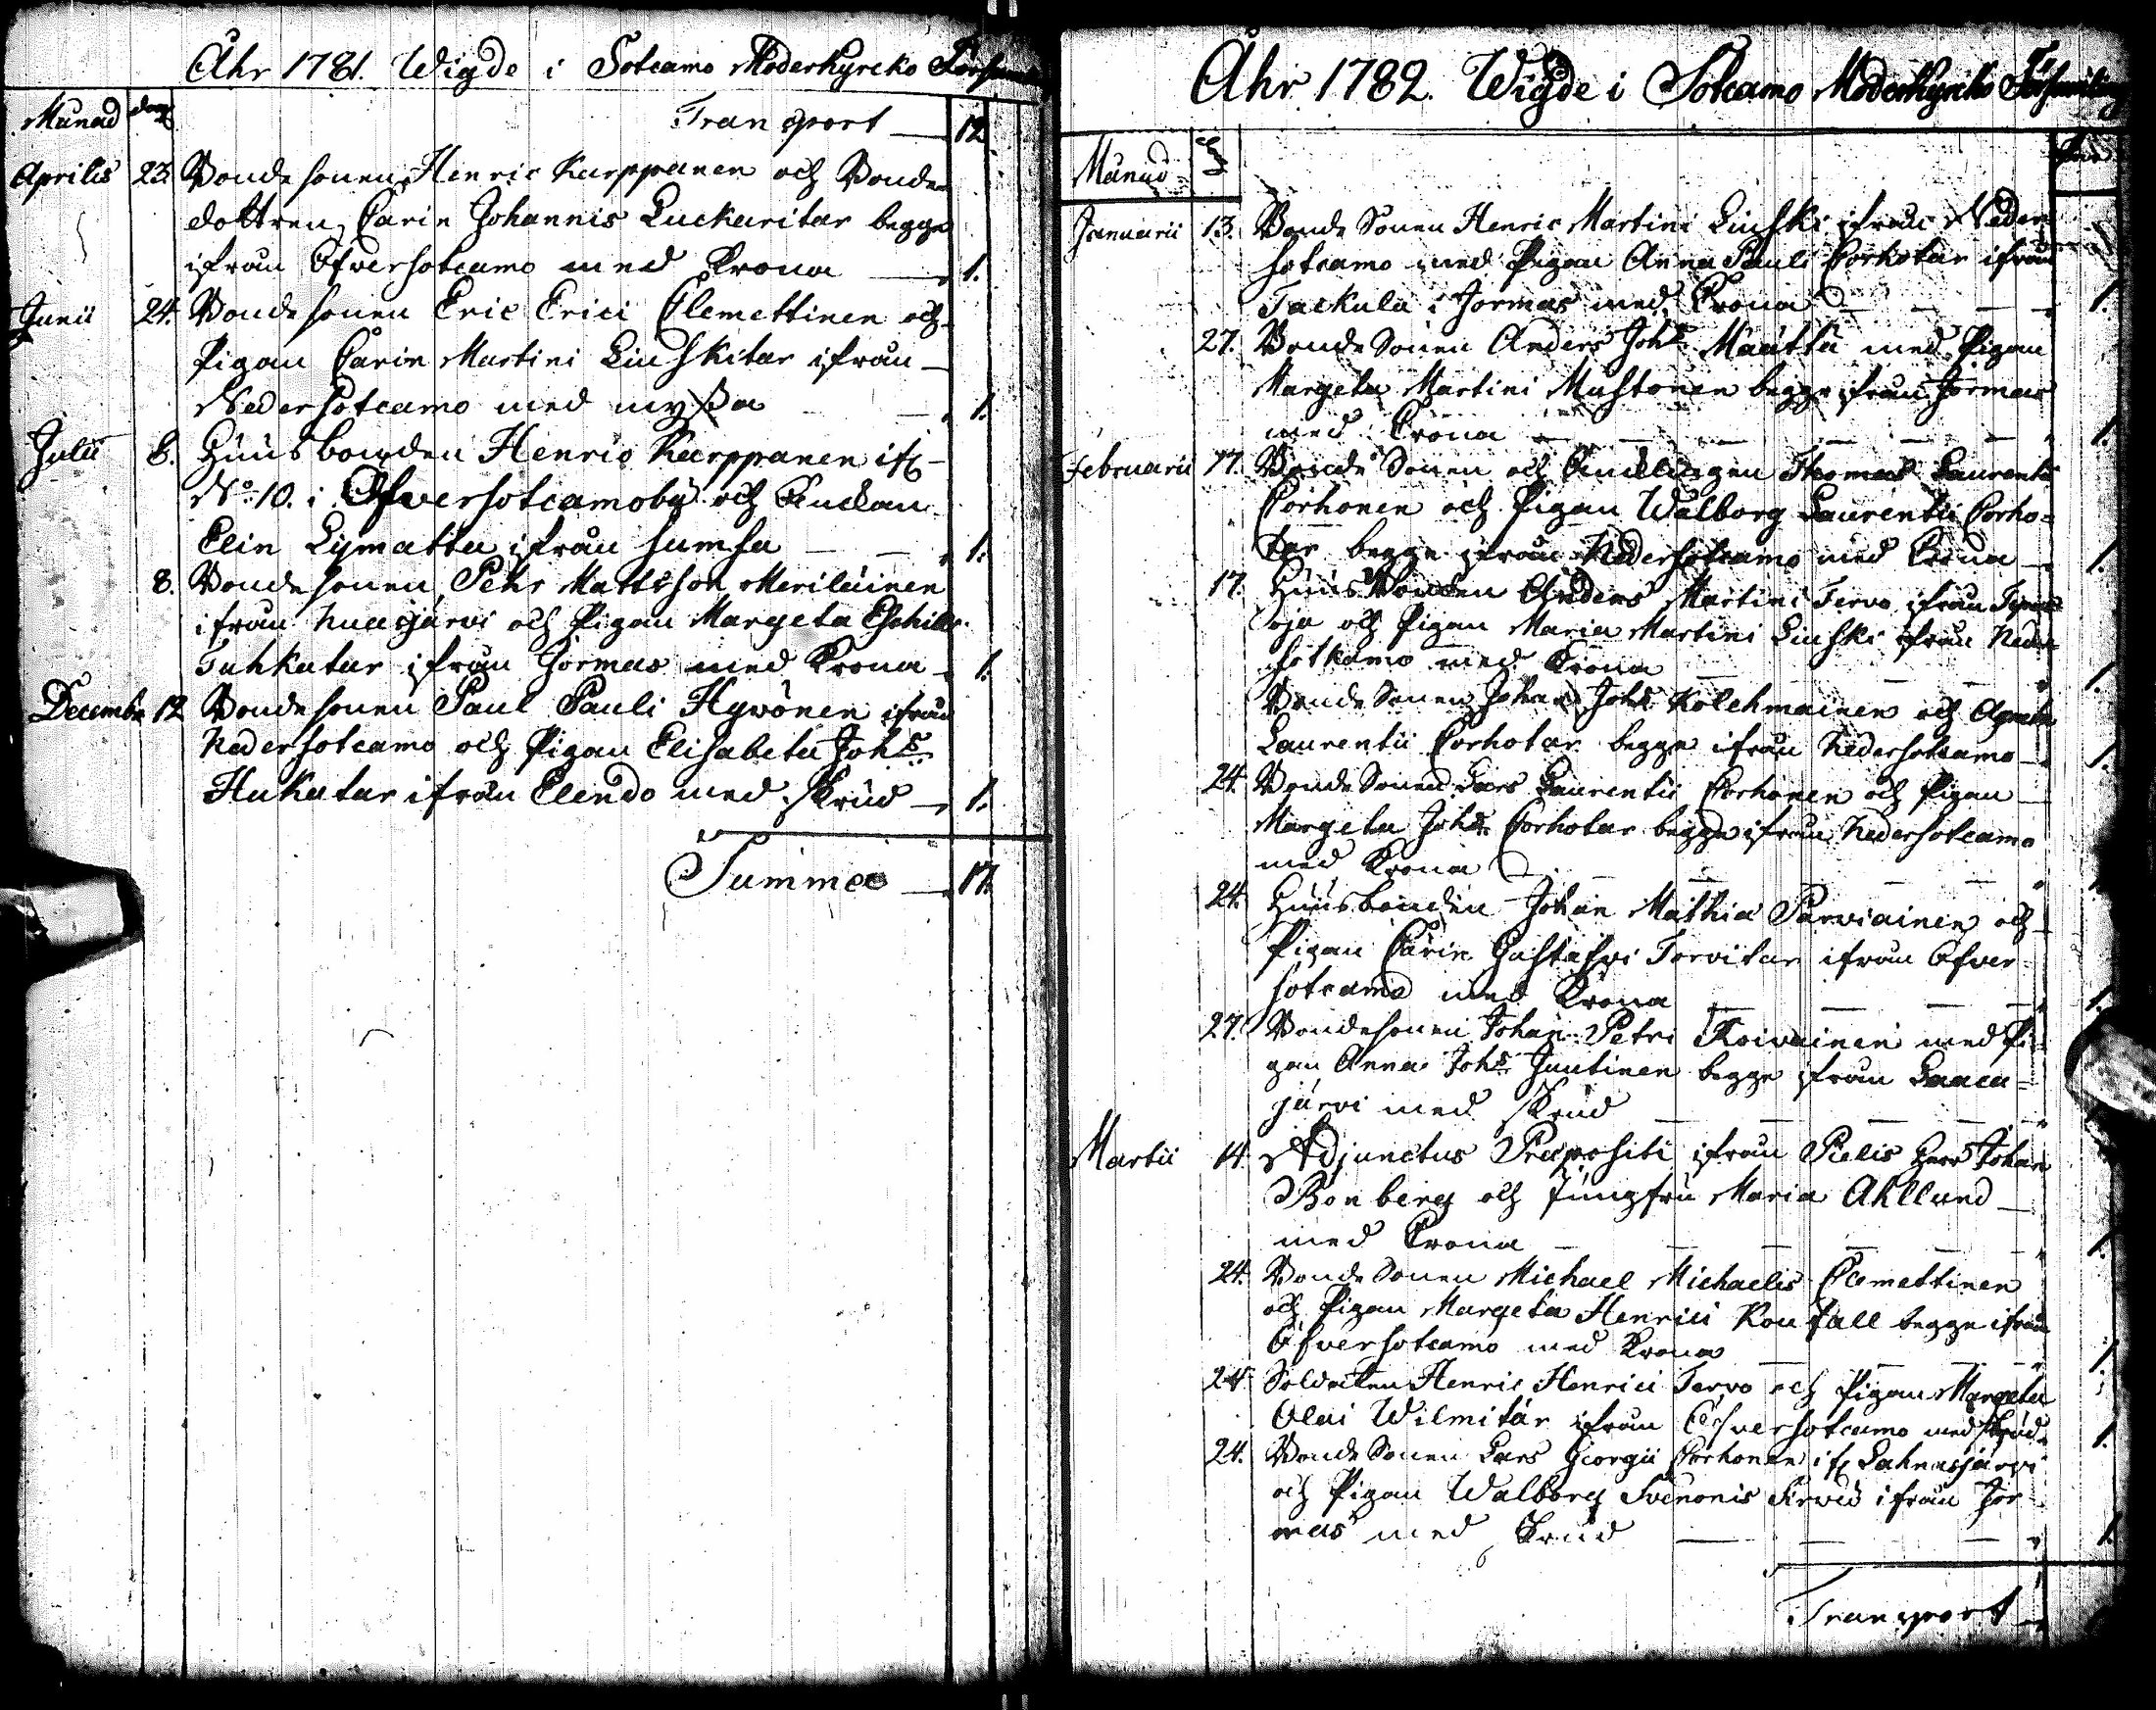 Åhr 1781. Wigde i Sotcamo Moderkyrcko Församl
Månad dag
Transport 12
Aprilis 23. Bondesonen Henric Karppanen och Bonde
dottren Carin Johannis Luckaritar begge
ifrån Öfversotcamo med Krona 1.
Junii 24. Bondesonen Eric Erici Clemettinen och
Pigan Carin Martini Liuskitar ifrån
Nedersotcamo med myssa 1.
Julii 8. Husbonden Henric Karppanen if
No 10. i Öfversotcamoby och Enckan
Elin Lymatta ifrån sumsa 1.
8. Bondesonen Pehr Mattsson Meriläinen
ifrån Nuasjärvi och Pigan Margeta
Tuhkatar ifrån Jormas med Krona 1.
Decembr 12 Bondesonen Paul Pauli Hyvönen ifrån
Nedersotcamo och Pigan Elisabeta Johs
Hukatar ifrån Elendo med skrud 1.
Summa 17.
Åhr 1782. Wigde i Sotcamo Moderkyrcko Församling
Månad
Januarii 13. Bonde Sonen Henric Martini Liuski ifrån Neder
sotcamo med Pigan Anna Pauli Corhotar ifrån
Tackula i Jormas med Crona 1.
27. Bonde Sonen Anders Johs Määttä med Pigan
Margeta Martini Mustonen begge ifrån Jormas
med Crona 1.
Februarii 17. Bonde Sonen och Thomas Laurentii
Corhonen och Pigan Walborg Laurentii Corho=
tar begge ifrån Nedersotcamo med Crona 1.
17. Husbonden Anders Martini Tervo ifrån
oja och Pigan Maria Martini Liuski ifrån Neder
sotkamo med Krona 1.
Bonde Sonen Johan Johs Kolehmainen och Agneta
Laurentii Corhotar begge ifrån Nedersotcamo 1.
24. Bonde Sonen Lars Laurentii Corhonen och Pigan
Margeta Johs Corhotar begge ifrån Nedersotcamo
med Krona
24. Husbonden Johan Mathiæ Parviainen och
Pigan Carin Gustafvi Torvitar ifrån Öfver
sotcamo med Krona 1.
27. Bondesonen Johan Petri Koivainen med Pi
gan Anna Johs Juutinen begge ifrån Laaca=
järvi med skrud
Martii 14 Adjunctus Præpositi ifrån Pielis Herr Johan
Bonberg och Jungfru Maria Ahllund
med Crona 1.
24. Bonde Sonen Michael Michaelis Clemettinen
och Pigan Margeta Henrici Kou begge ifrån
Öfversotcamo med Krona 1.
24 Soldaten Henric Henrici Tervo och Pigan Margeta
Olai Wilmitar ifrån Öfversotcamo med skrud 1.
24. Bonde Sonen Lars Georgii Corhonen if Lahnasjärvi
och Pigan Walborg Svenonis Sirviö ifrån Jor
mas med skrud 1.
Transport